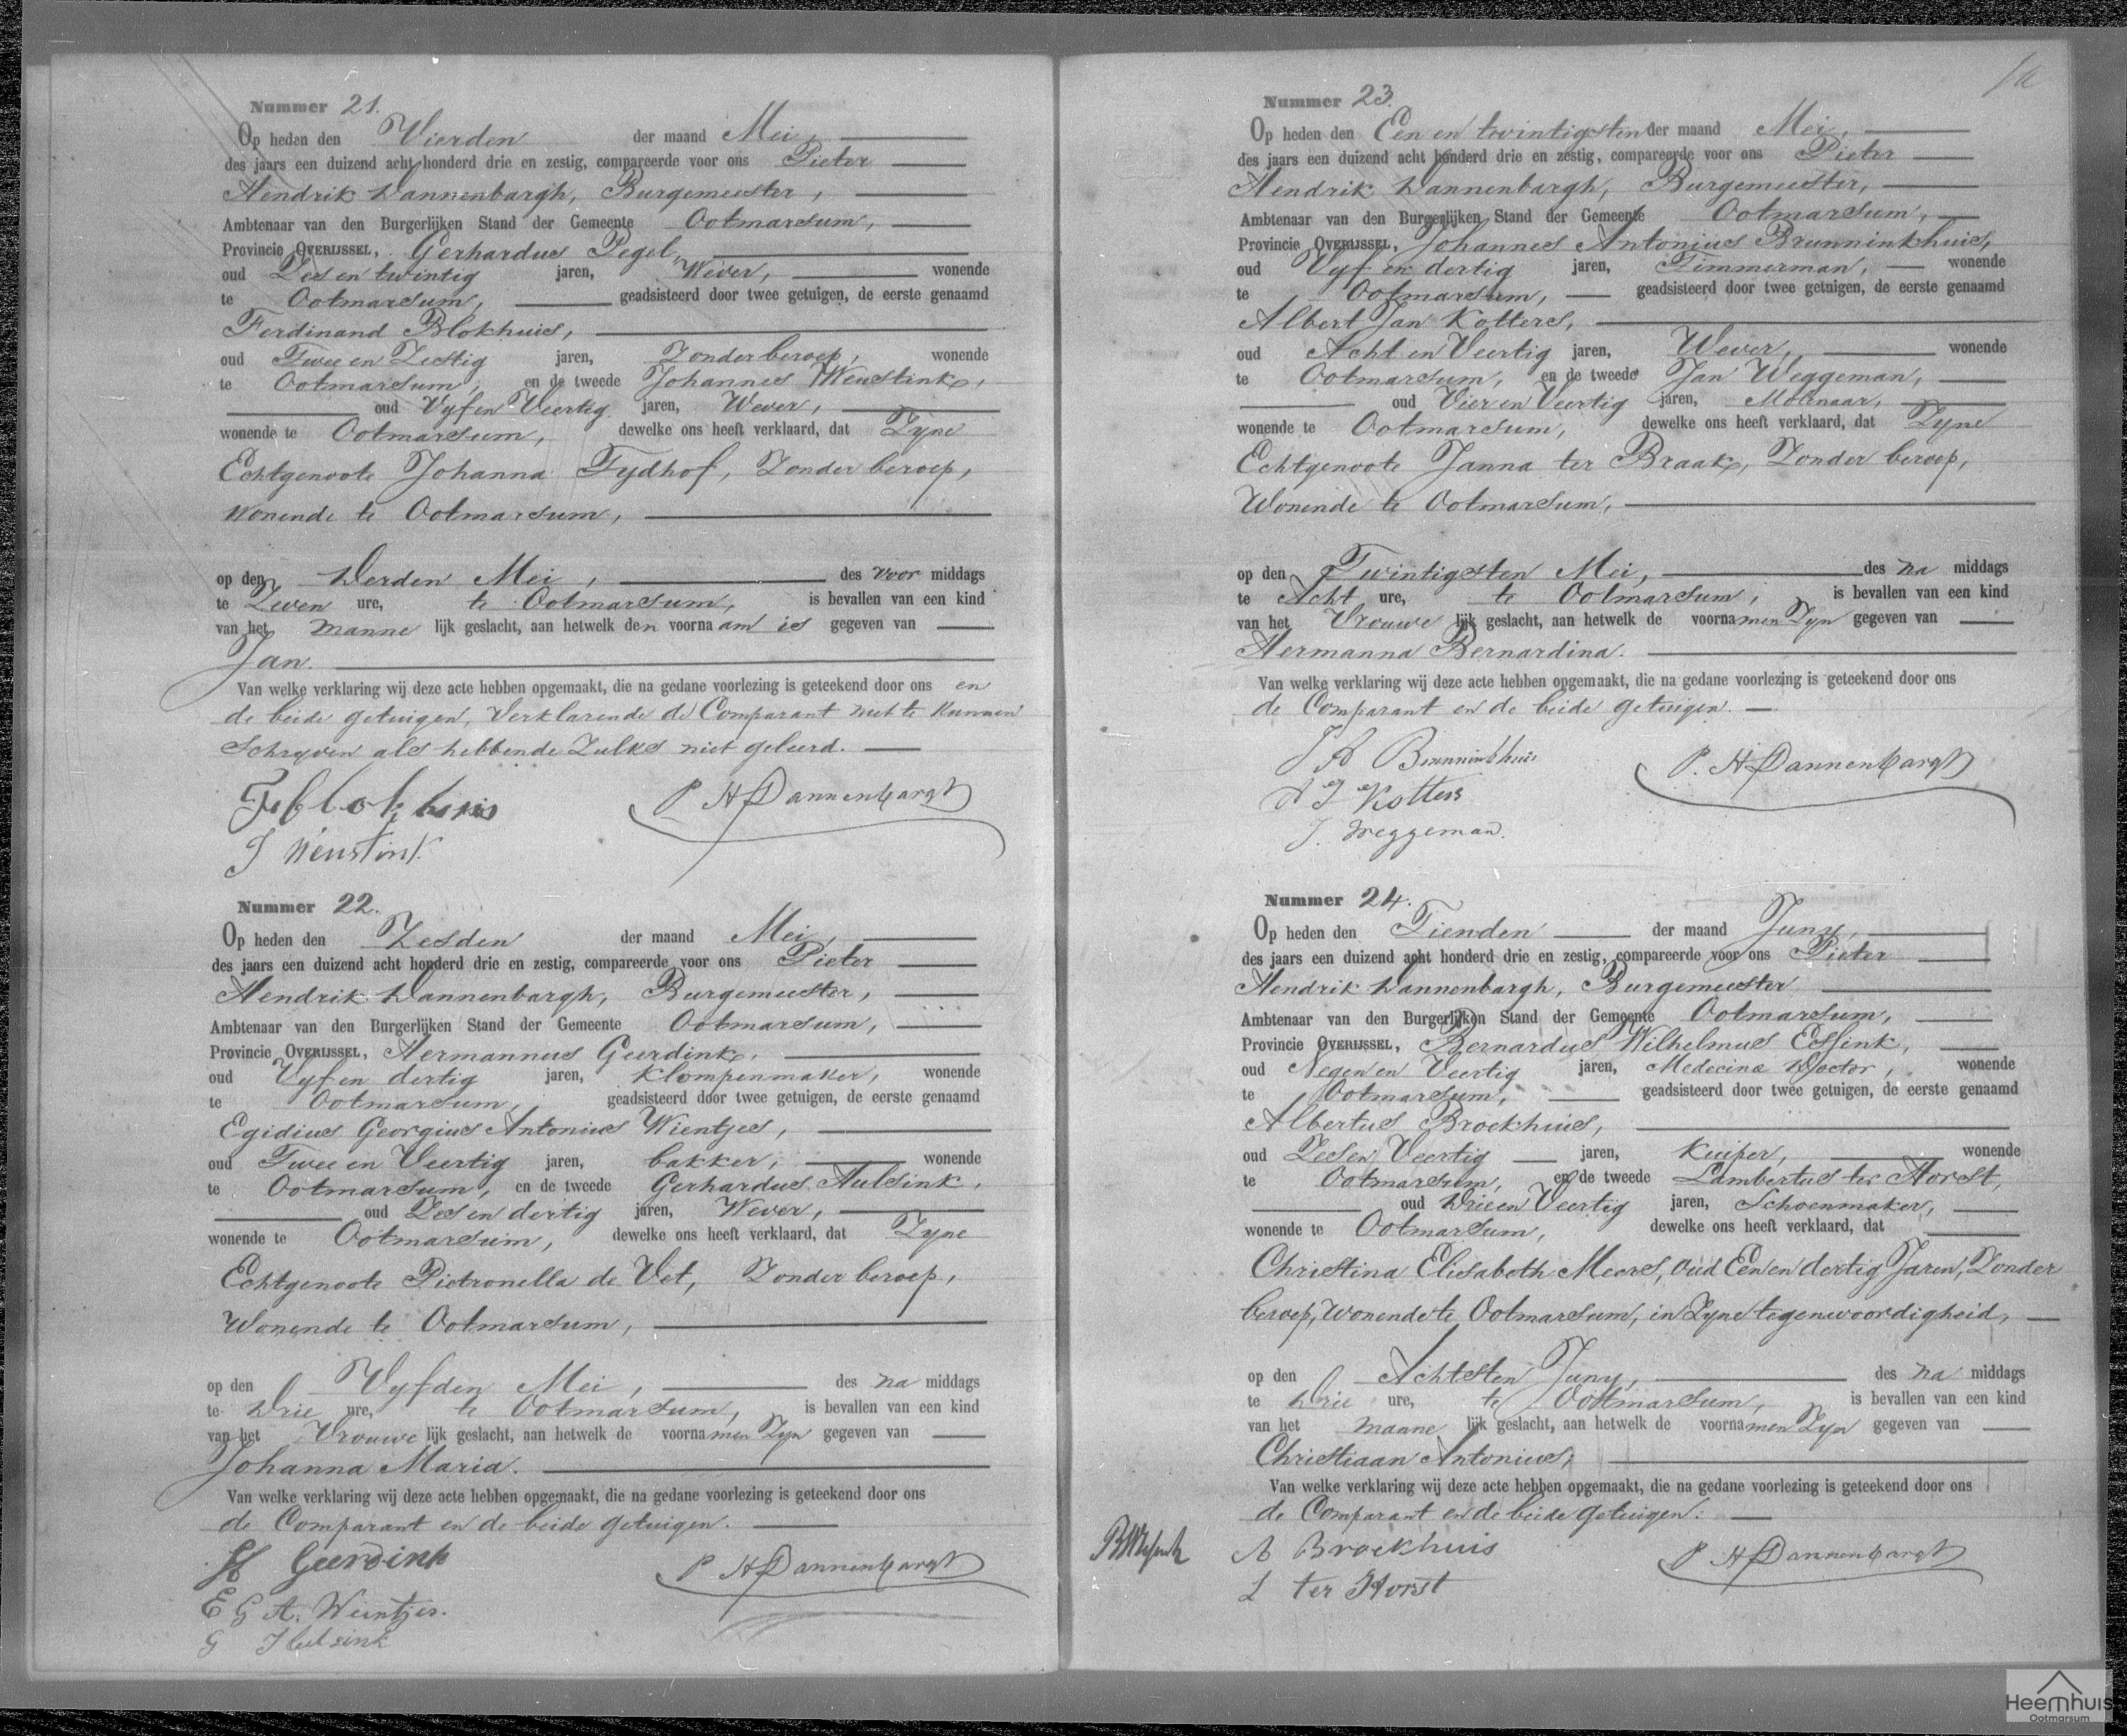 Nummer 21.
Op heden den Vierden der maand Mei,
des jaars een duizend acht honderd drie en zestig, compareerde voor ons Pieter
Hendrik Dannenbargh, Burgemeester,
Ambtenaar van den Burgerlijken Stand der Gemeente Ootmarsum,
Provincie OVERIJSSEL, Gerhardus Pegel,
oud Zes en twintig jaren, Wever, wonende
te Ootmarsum, geadsisteerd door twee getuigen, de eerste genaamd
Ferdinand Blokhuis,
oud Twee en Zestig jaren, Zonder beroep, wonende
te Ootmarsum, en de tweede Johannes Weustink,
oud Vyf en Veertig jaren, Wever,
wonende te Ootmarsum, dewelke ons heeft verklaard, dat Zyne
Echtgenoote Johanna Tydhof, Zonder beroep,
Wonende te Ootmarsum,
op den Derden Mei, des voor middags
te Zeven ure, te Ootmarsum, is bevallen van een kind
van het manne lijk geslacht, aan hetwelk den voornaam is gegeven van
Jan.
Van welke verklaring wij deze acte hebben opgemaakt, die na gedane voorlezing is geteekend door ons en
de beide getuigen, Verklarende de Comparant niet te kunnen
Schryven als hebbende Zulks niet geleerd.
F Blokhuis P. H. Dannenbargh
J Weustink
Nummer 22.
Op heden den Zesden der maand Mei,
des jaars een duizend acht honderd drie en zestig, compareerde voor ons Pieter
Hendrik Dannenbargh, Burgemeester,
Ambtenaar van den Burgerlijken Stand der Gemeente Ootmarsum,
Provincie OVERIJSSEL, Hermannus Geerdink,
oud Vyf en dertig jaren, Klompenmaker, wonende
te Ootmarsum, geadsisteerd door twee getuigen, de eerste genaamd
Egidius Georgius Antonius Wientjes,
oud Twee en Veertig jaren, bakker, wonende
te Ootmarsum, en de tweede Gerhardus Hulsink,
oud Zes en dertig jaren, Wever,
wonende te Ootmarsum, dewelke ons heeft verklaard, dat Zyne
Echtgenoote Pietronella de Vet, Zonder beroep,
Wonende te Ootmarsum,
op den Vyfden Mei, des na middags
te Drie ure, te Ootmarsum, is bevallen van een kind
van het Vrouwe lijk geslacht, aan hetwelk de voornamen Zyn gegeven van
Johanna Maria.
Van welke verklaring wij deze acte hebben opgemaakt, die na gedane voorlezing is geteekend door ons
de Comparant en de beide getuigen.
H Geerdink P. H. Dannenbargh
E G A. Wientjes.
G Hulsink
Nummer 23.
Op heden den Een en twintigsten der maand Mei,
des jaars een duizend acht honderd drie en zestig, compareerde voor ons Pieter
Hendrik Dannenbargh, Burgemeester,
Ambtenaar van den Burgerlijken Stand der Gemeente Ootmarsum,
Provincie OVERIJSSEL, Johannes Antonius Brunninkhuis,
oud Vyf en dertig jaren, Timmerman, wonende
te Ootmarsum, geadsisteerd door twee getuigen, de eerste genaamd
Albert Jan Kotters,
oud Acht en Veertig jaren, Wever, wonende
te Ootmarsum, en de tweede Jan Weggeman,
oud Vier en Veertig jaren, Molenaar,
wonende te Ootmarsum, dewelke ons heeft verklaard, dat Zyne
Echtgenoote Janna ter Braak, Zonder beroep,
Wonende te Ootmarsum,
op den Twintigsten Mei, des na middags
te Acht ure, te Ootmarsum, is bevallen van een kind
van het Vrouwe lijk geslacht, aan hetwelk de voornamen Zyn gegeven van
Hermanna Bernardina.
Van welke verklaring wij deze acte hebben opgemaakt, die na gedane voorlezing is geteekend door ons
de Comparant en de beide getuigen.
J A Brunninkhuis P. H. Dannenbargh
A J Kotters
J. Weggeman.
Nummer 24.
Op heden den Tienden der maand Juny,
des jaars een duizend acht honderd drie en zestig, compareerde voor ons Pieter
Hendrik Dannenbargh, Burgemeester
Ambtenaar van den Burgerlijken Stand der Gemeente Ootmarsum,
Provincie OVERIJSSEL, Bernardus Wilhelmus Essink,
oud Negen en Veertig jaren, Medecinae Doctor, wonende
te Ootmarsum, geadsisteerd door twee getuigen, de eerste genaamd
Albertus Brockhuis,
oud Zes en Veertig jaren, Kuiper, wonende
te Ootmarsum, en de tweede Lambertus ter Horst,
oud Drie en Veertig jaren, Schoenmaker,
wonende te Ootmarsum, dewelke ons heeft verklaard, dat
Christina Elisabeth Meers, oud Een en dertig Jaren, Zonder
beroep, Wonende te Ootmarsum, in Zyne tegenwoordigheid,
op den Achtsten Juny, des na middags
te Drie ure, te Ootmarsum, is bevallen van een kind
van het manne lijk geslacht, aan hetwelk de voornamen Zyn gegeven van
Christiaan Antonius,
Van welke verklaring wij deze acte hebben opgemaakt, die na gedane voorlezing is geteekend door ons
de Comparant en de beide getuigen.
BW Essink A Brockhuis P. H. Dannenbargh
L ter Horst
Heemhuis
Ootmarsum